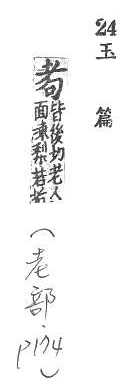 24
玉篇
耇
皆後切老人
面凍梨若垢
(老部.p174)